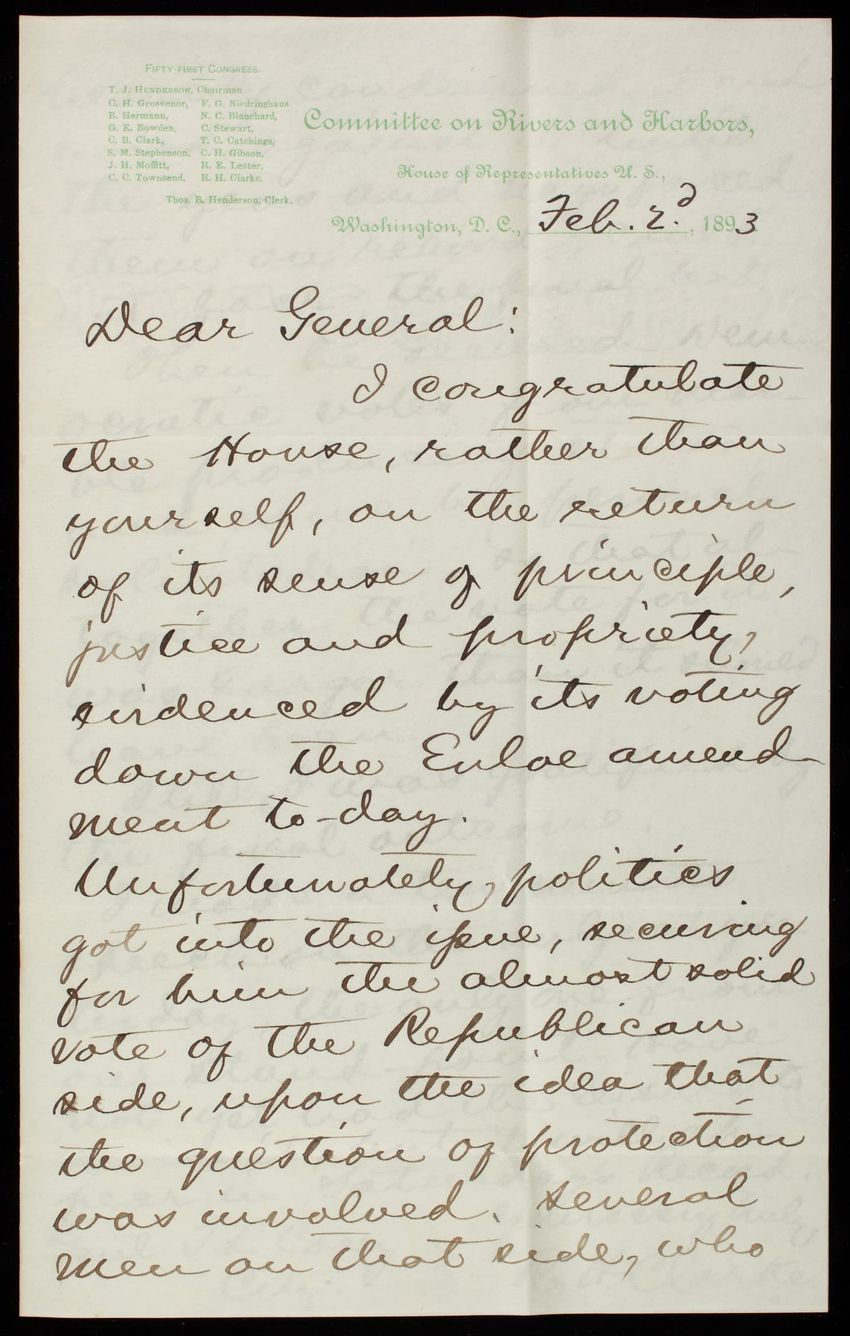 FIFTY-FIRST CONGRESS.
T. J. HENDERSON, Chairman.
C. H. Grosvenor, F. G. Niedringhaus
B. Hermann, N. C. Blanchard,
G. E. Bowden, C. Stewart,
C. B. Clark, T. C. Catchings,
S. M. Stephenson, C. H. Gibson,
J. H. Moffitt, R. E. Lester,
C. C. Townsend, R. H. Clarke.
Thos. B. Henderson, Clerk.
Committee on Rivers and Harbors,
House of Representatives U. S.,
Washington, D. C., Feb. 2d, 1893
Dear General:
I congratulate
the House, rather than
yourself, on the return
of its sense of principle,
justice and propriety,
evidenced by its voting
down the Enloe amend-
ment to-day.
Unfortunately, politics
got into the issue, securing
for him the almost solid
vote of the Republican
side, upon the idea that
the question of protection
was involved. Several
men on that side, who